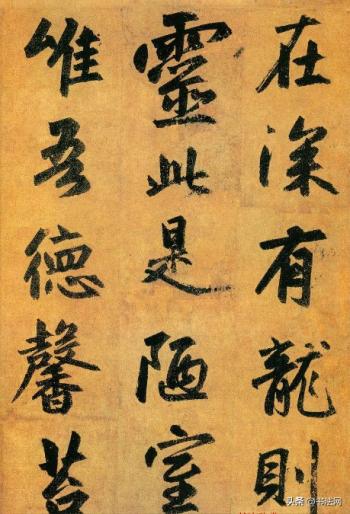 在深有龍則
靈此是陋室
唯吾德馨苔
头条 @书法网